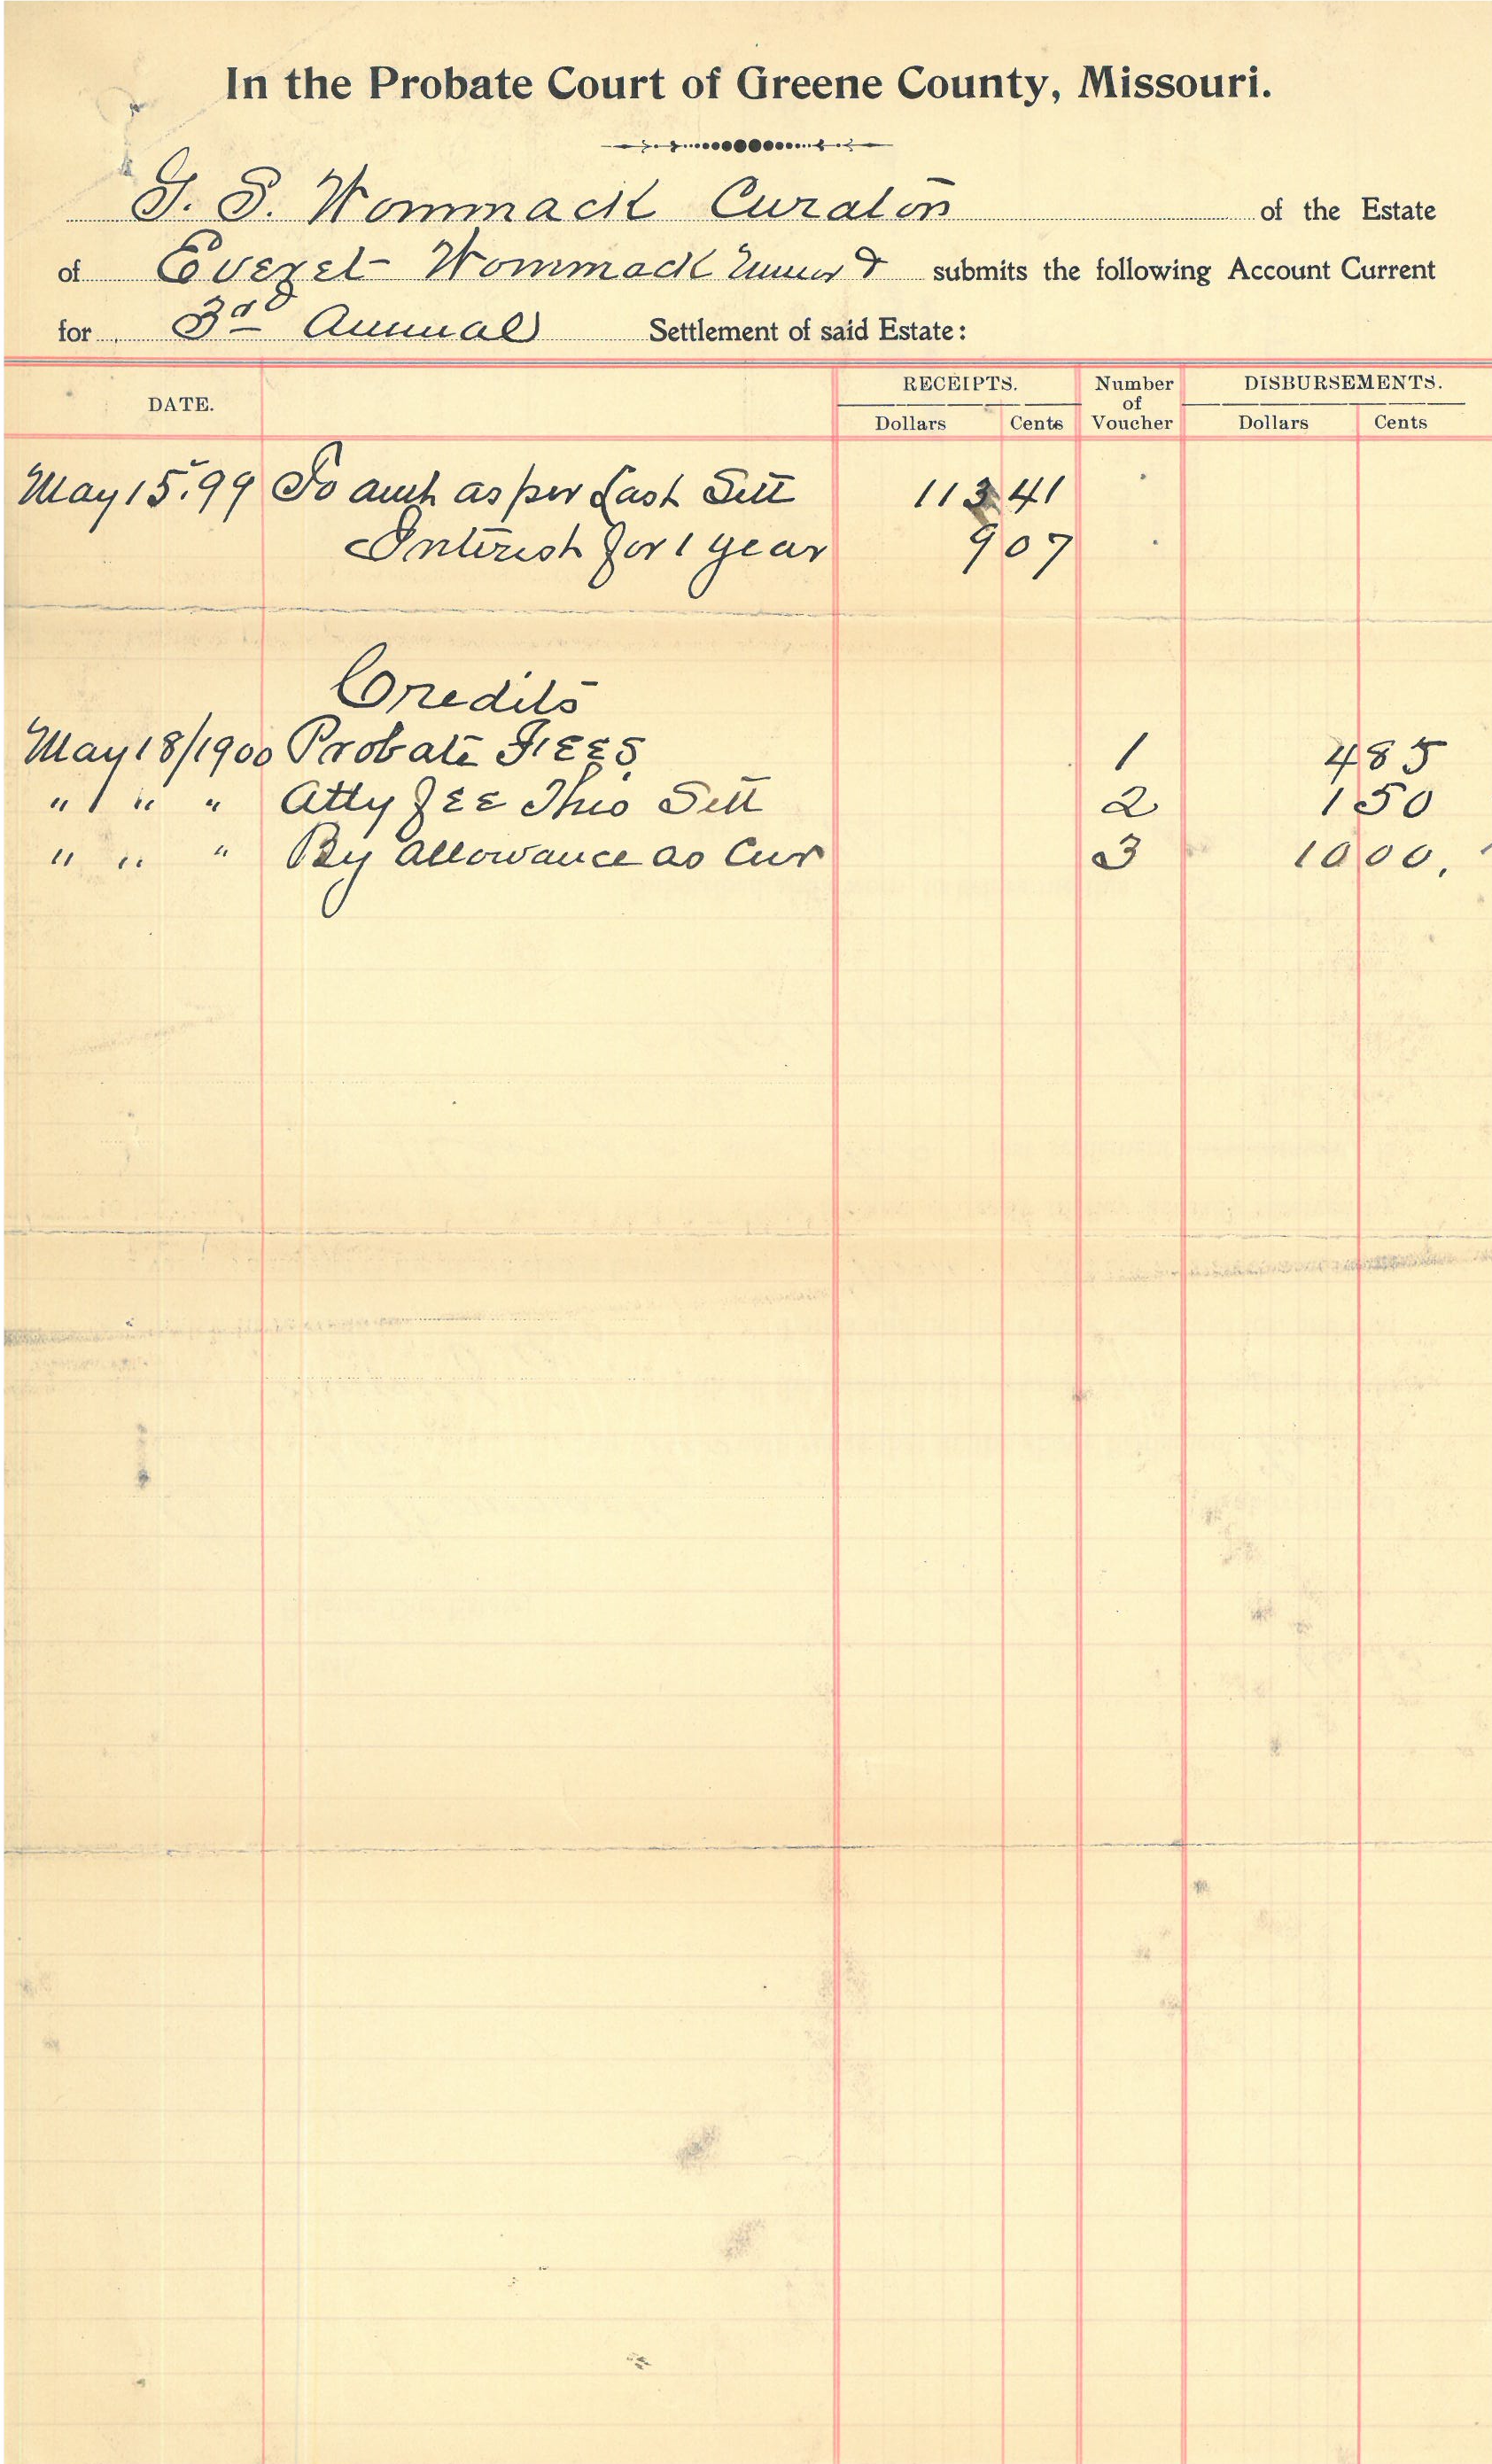 In the Probate Court of Greene County, Missouri.
G. S. Wommack Curator of the Estate
of Everet Wommack minor submits the following Account Current
for 3rd Annual Settlement of said Estate:
DATE. RECEIPTS. Number of Voucher DISBURSEMENTS.
Dollars Cents Dollars Cents
May 15, 99 To amt as per Last Sett 113 41
Interest for 1 year 9 07
Credits
May 18/1900 Probate Fees 1 4 85
" " " Atty fee This Sett 2 1 50
" " " By allowance as Cur 3 10 00.